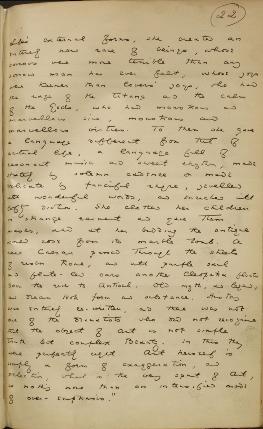 22
life's external forms, she created an
entirely new race of beings, whose
sorrows were more terrible than any
sorrow man has ever felt, whose joys
were keener than lover's joys, who had
the rage of the Titans and the calm
of the Gods, who had monstrous and
marvellous sins, monstrous and
marvellous virtues. To them she gave
a language different from that of
actual life, a language full of
resonant music and sweet rhythm, made
stately by solemn cadence or made
delicate by fanciful rhyme, jewelled
with wonderful words, and enriched with
lofty diction. She clothed her children
in strange raiment and gave them
masks, and at her bidding the antique
world rose from its marble tomb. A
new Caesar stalked through the streets
of risen Rome, and with purple sail
and flute-led oars another Cleopatra passed
up the river to Antioch. Old myth and legend
and dream took form and substance. History
was entirely re-written, and there was not
one of the dramatists who did not recognise
that the object of Art is not simple
truth but complex Beauty. In this they
were perfectly right. Art herself is
simply a form of exaggeration, and
selection, which is the very spirit of Art,
is nothing more than an intensified mode
of over-emphasis."